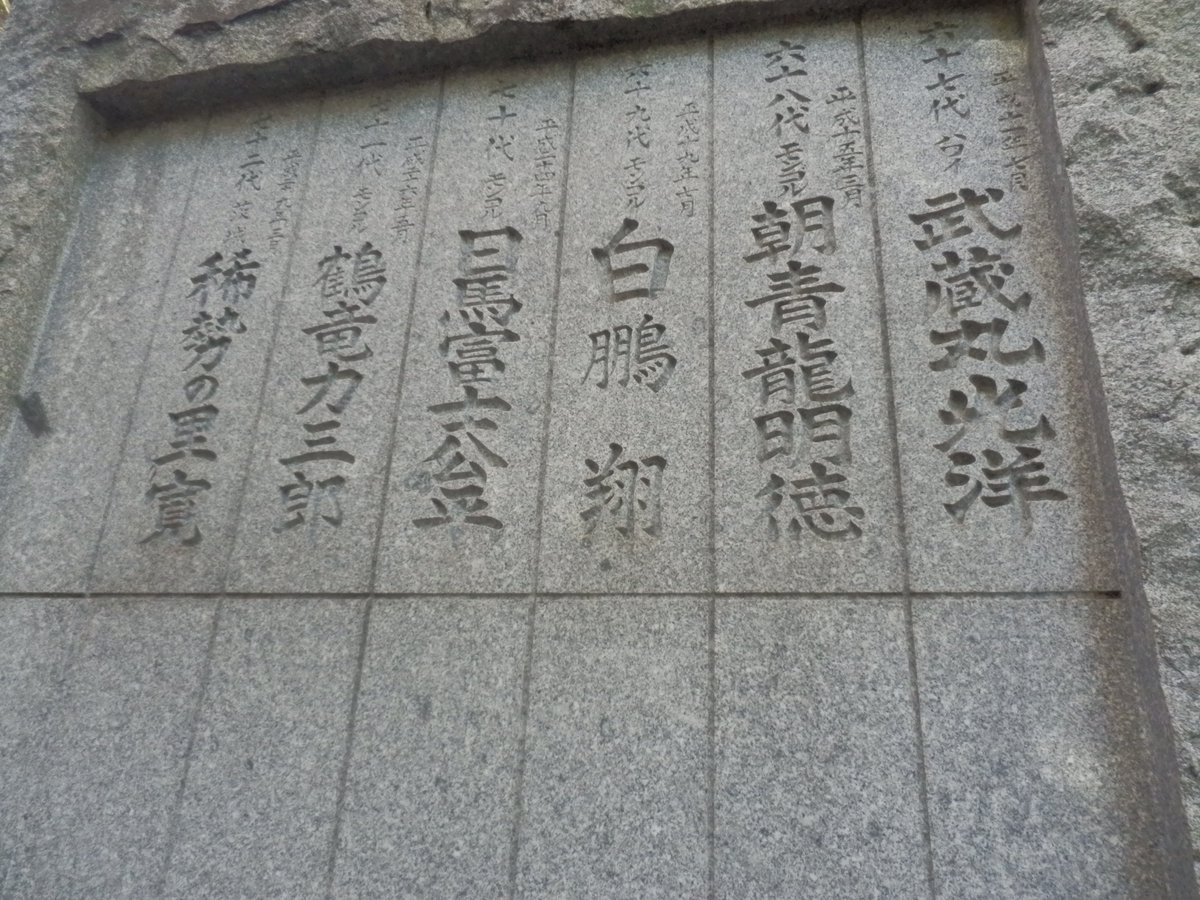 六十七代 ハワイ 武蔵丸光洋
六十八代 モンゴル 平成十五年三月
朝青龍明徳
六十九代 モンゴル 平成十九年七月
白鵬翔
七十代 モンゴル
日馬富士公平
七十一代 モンゴル 平成二十六年五月
鶴竜力三郎
七十二代 茨城
稀勢の里寛